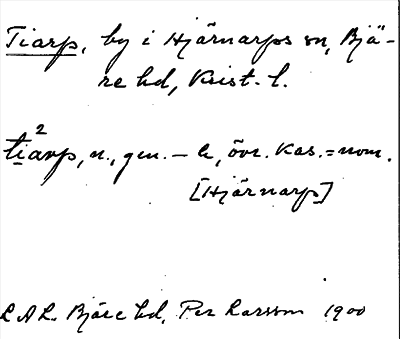 Tiarp, by i Hjärnarps sn, Bjä-
re hd, Krist. l.
ti²arp, n., gen. – s, övr. kas. = nom.
[Hjärnarp]
L A L. Bjäre hd, Per Larsson 1900